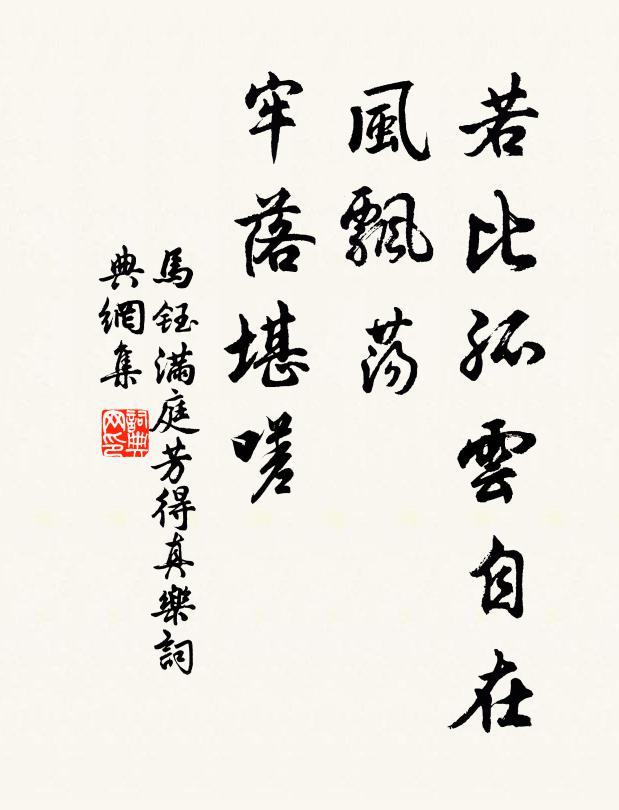 若比孤雲自在
風飄蕩
牢落堪嗟
馬鈺滿庭芳得真樂詞
典網集
詞典
网印